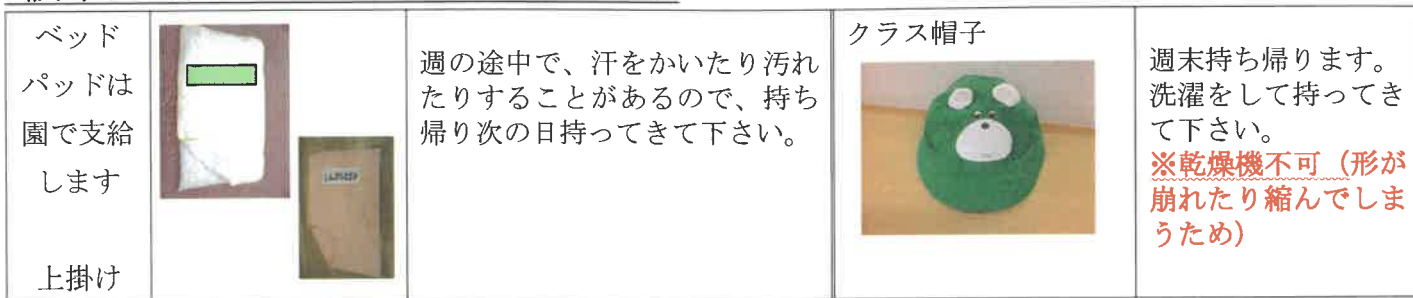 ベッド
パッドは
園で支給
します
上掛け
週の途中で、汗をかいたり汚れ
たりすることがあるので、持ち
帰り次の日持ってきて下さい。
クラス帽子
週末持ち帰ります。
洗濯をして持ってき
て下さい。
※乾燥機不可（形が
崩れたり縮んでしま
うため）